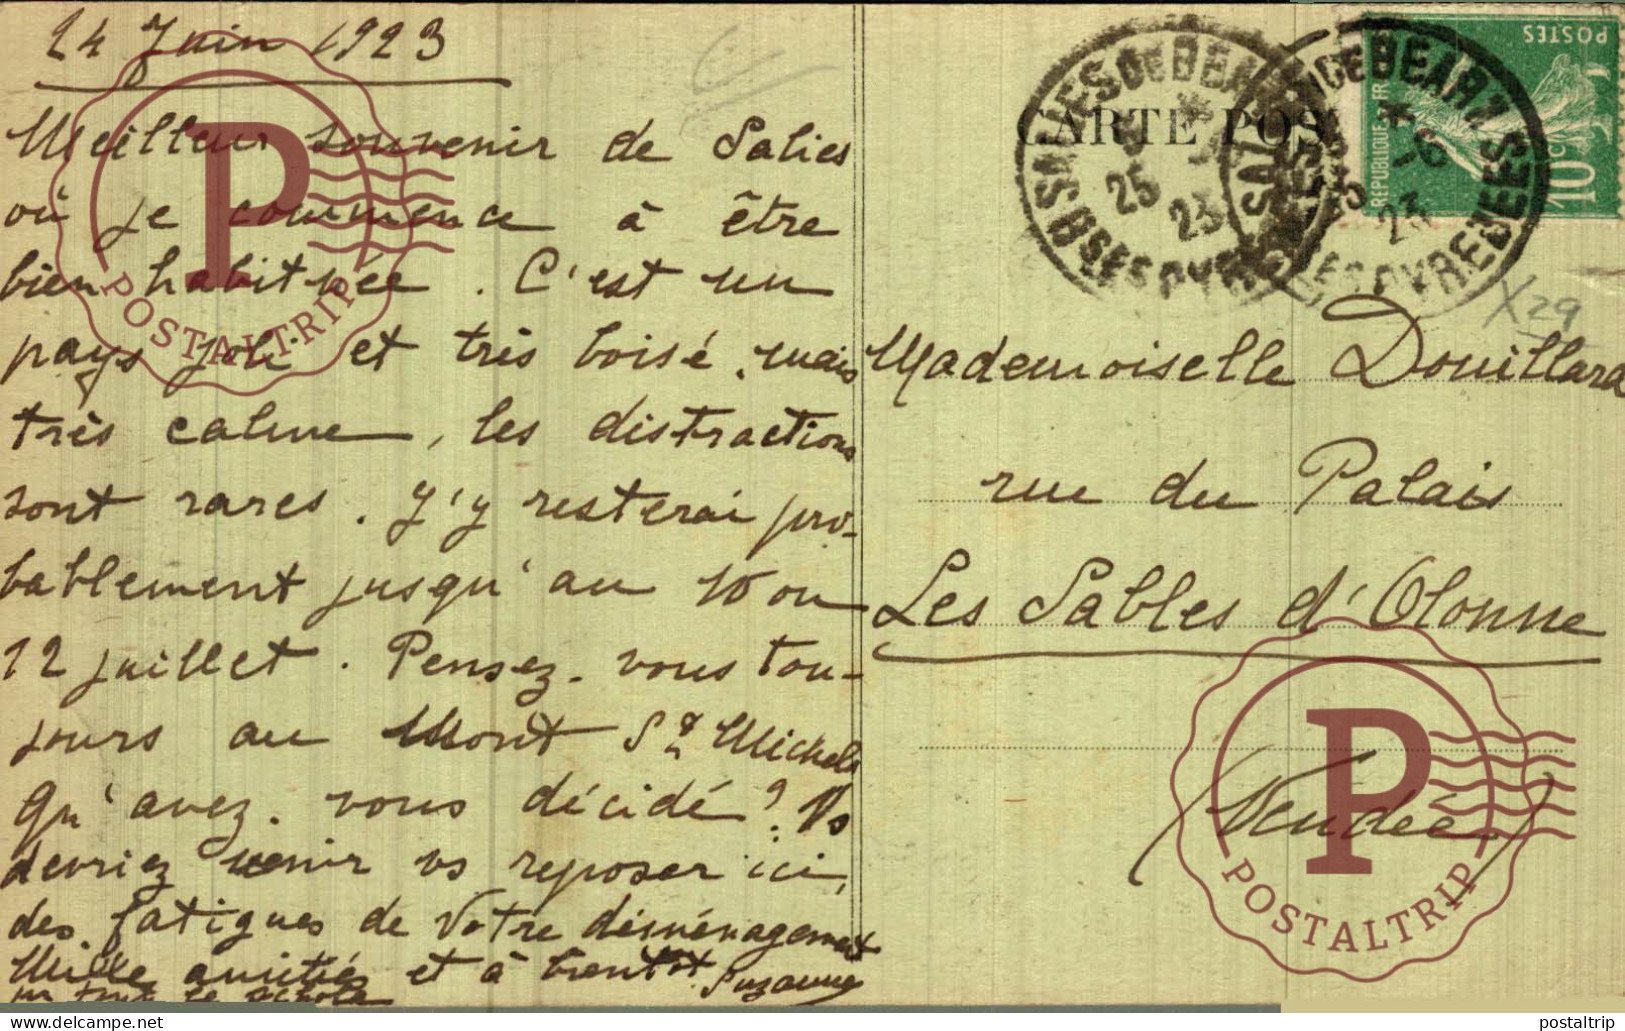 24 Juin 1923
Meilleur souvenir de Salies
où je commence à être
bien habituée. C'est un
pays joli et très boisé, mais
très calme, les distractions
sont rares. J'y resterai pro-
bablement jusqu'au 10 ou
12 juillet. Pensez-vous tou-
jours au Mont St Michel
Qu'avez-vous décidé? Vs
devriez venir vs reposer ici,
des fatigues de votre déménagement
Mille amitiés et à bientôt. Suzanne
CARTE POS
SALIES DE BEARN
25
23
BSES PYRENEES
SALIES DE BEARN
-6
23
BSES PYRENEES
POSTES
REPUBLIQUE FR
10c
X 29
Mademoiselle Douillard
rue du Palais
Les Sables d'Olonne
(Vendée)
P
POSTALTRIP
P
POSTALTRIP
delcampe.net
postaltrip